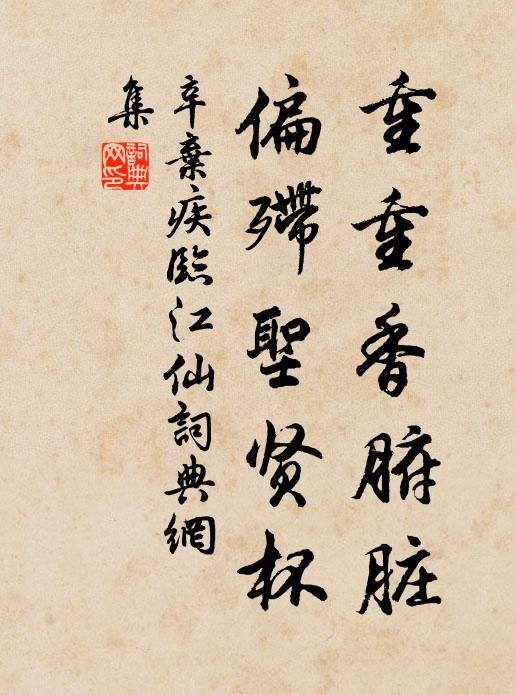 重重香腑脏
偏殢聖贤杯
辛棄疾臨江仙詞典網
集
詞典網印